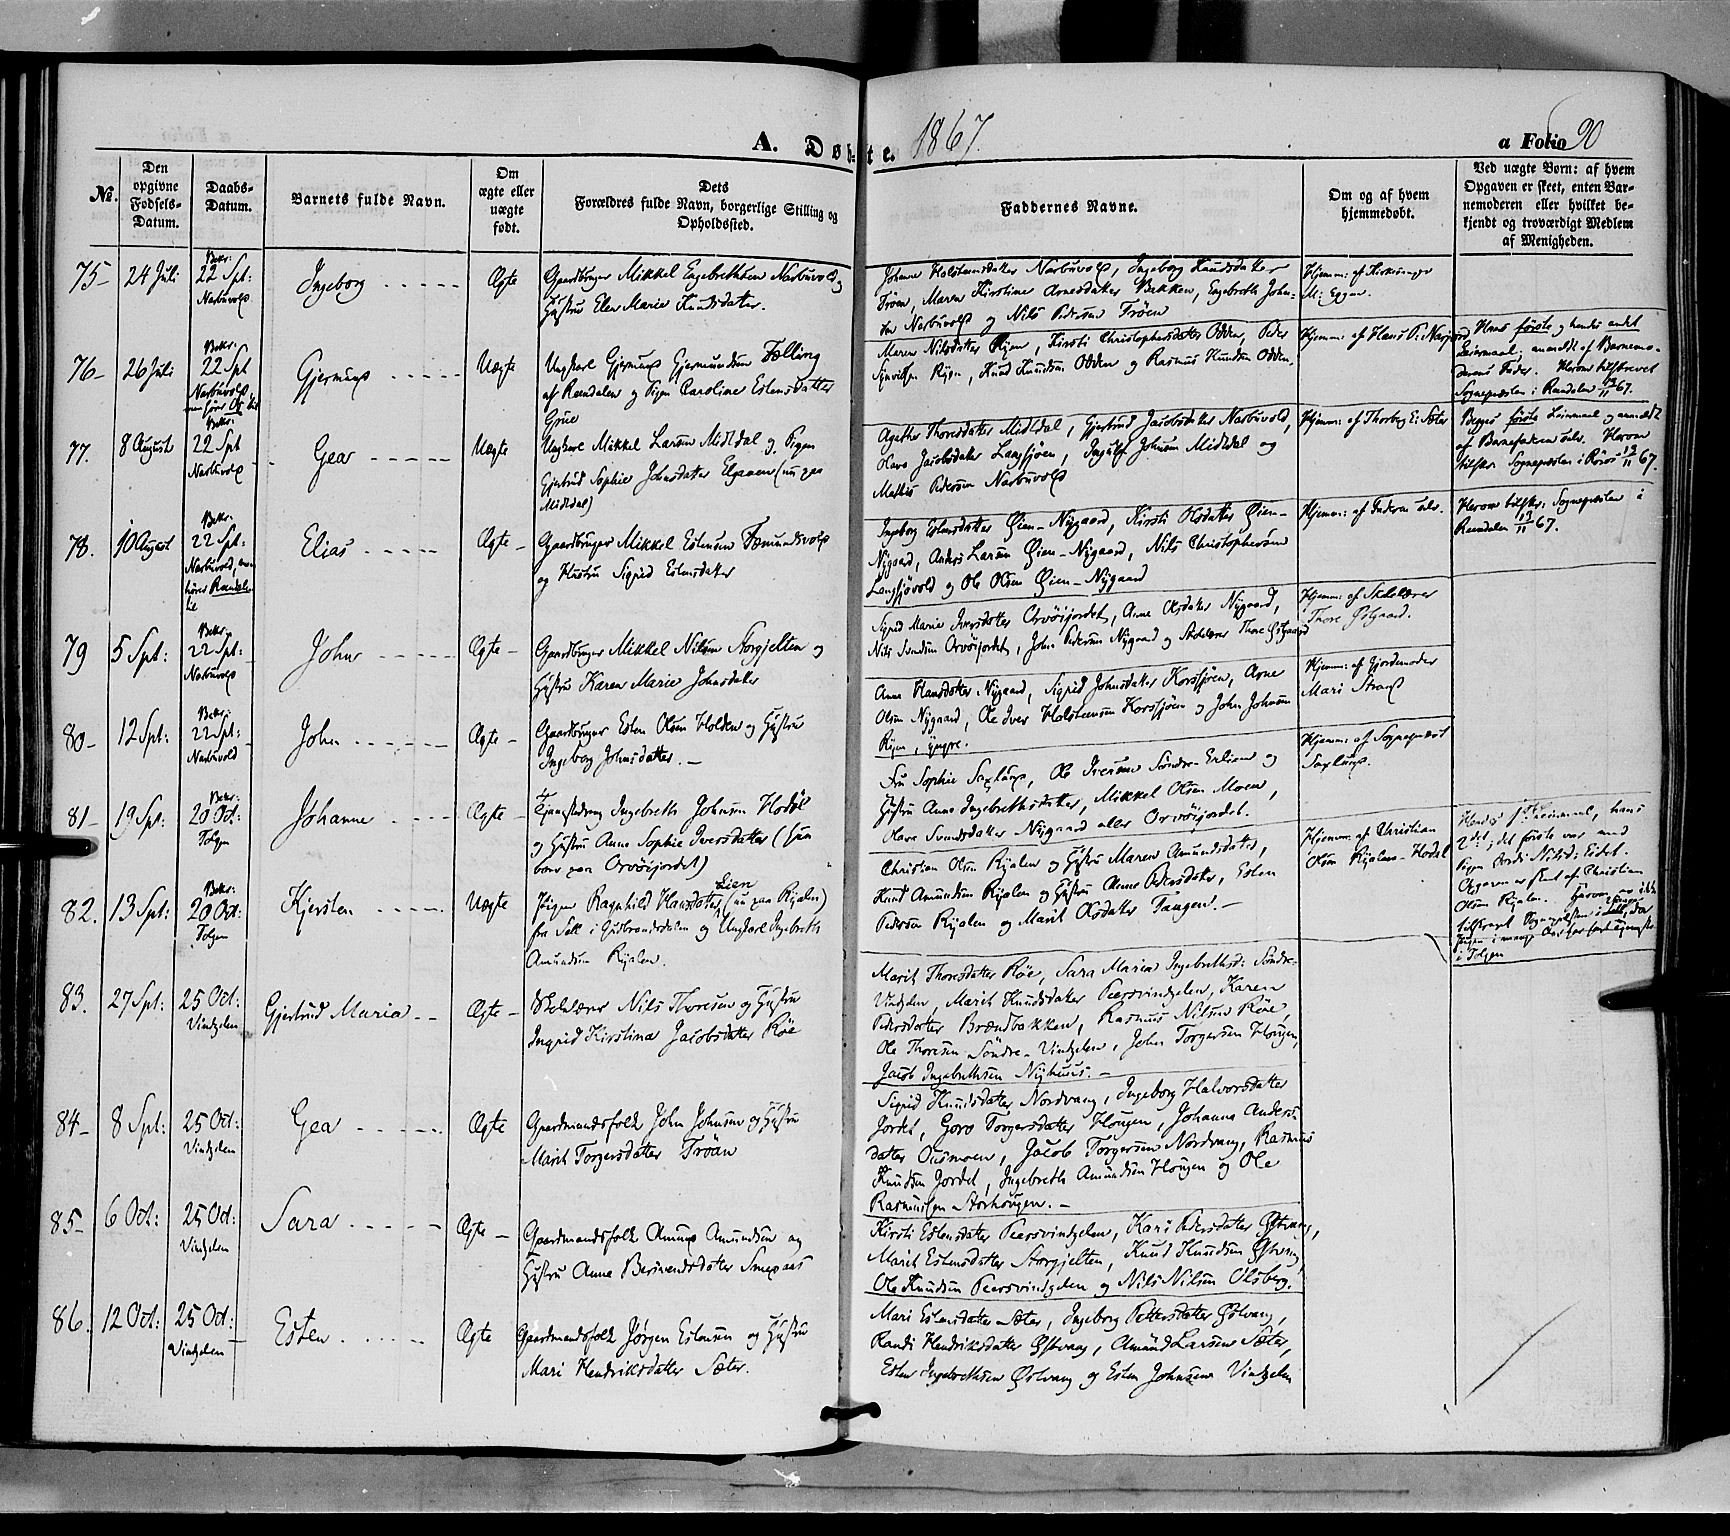 A. Døbte. 1867.
a Folio 90
No.
Den opgivne Fødsels-Datum.
Daabs-Datum.
Barnets fulde Navn.
Om ægte eller uægte født.
Dets Forældres fulde Navn, borgerlige Stilling og Opholdssted.
Faddernes Navne.
Om og af hvem hjemmedøbt.
Ved uægte Børn: af hvem
Opgaven er skeet, enten Bar-
nemoderen eller hvilket be-
kjendt og troværdigt Medlem
af Menigheden.
75- 24 Juli Bekr: 22 Spt: Narbuvold Ingeborg Ægte
Gaardbruger Mikkel Engebrethsen Narbuvold og
Hustru Elen Marie Knudsdatter.
Johanne Holstensdatter Narbuvold, Ingeborg Knudsdatter
Trøen, Maren Kirstine Arnesdatter Bekken, Engebreth John-
sen Narbuvold og Nils Pedersen Trøen
Hjemm: af Kirkesanger
M: Eggen.
76- 26 Juli Bekr: 22 Spt Narbuvold Gjermund Uægte
Ungkarl Gjermund Gjermundsen Fælling
af Rendalen og Pigen Caroline Estensdatter
Grue
Maren Nilsdatter Ryen, Kirsti Christophersdatter Odden, Peder
Ryen, Knud Knudsen Odden og Rasmus Knudsen Odden.
Hjemm: af Hans P: Narjord
Hans første og hendes andet
Leiermaal; anmeldt af Barnemo-
derens Fader. Herom tilskrevet
Sognepræsten i Rendalen 12/11 67.
77. 8 August Bekr: 22 Spt Narbuvold Gear Uægte
Ungkarl Mikkel Larsen Midtdal og Pigen
Gjertrud Sophie Johnsdatter Elgaaen (nu paa
Midtdal)
Agathe Thoresdatter Midtdal, Gjertrud Jacobsdatter Narbuvold,
Olava Jacobsdatter Langsjøen, Ingulf Johnsen Midtdal og
Mathis Pedersen Narbuvold
Hjemm: af Thorberg E: Sæter
Begges første Leiermaal og anmeldt
af Barnefaderen selv. Herom
tilskr. Sognepræsten i Røros 12/11 67.
78. 10 August Bekr: 22 Spt: Narbuvold, men hører Rendalen til Elias Ægte
Gaardbruger Mikkel Estensen Femundsvold
og Hustru Sigrid Estensdatter
Ingeborg Estensdatter Øien-Nygaard, Kirsti Olsdatter Øien-
Nygaard, Anders Larsen Øien-Nygaard, Nils Christophersen
Langsjøvold og Ole Olsen Øien-Nygaard
Hjemm: af Faderen selv.
Herom tilskr: Sognepræsten i
Rendalen 13/11 67.
79 5 Spt: Bekr: 22 Spt: Narbuvold John Ægte
Gaardbruger Mikkel Nilsen Storgjelten og
Hustru Karen Marie Johnsdatter
Sigrid Marie Iversdatter Orvøsjordet, Anne Olsdatter Nygaard,
Nils Svendsen Orvøsjordet, John Pedersen Nygaard og Skolelærer Thore Østgaard
Hjemm: af Skolelærer
Thore Østgaard.
80- 12 Spt: Bekr: 22 Spt: Narbuvold John Ægte
Gaardbruger Esten Olsen Holden og Hustru
Ingeborg Johnsdatter.
Anne Hansdatter Nygaard, Sigrid Johnsdatter Korssjøen, Arne
Olsen Nygaard, Ole Iver Holstensen Korssjøen og John Johnsen
Ryen, yngre.
Hjemm: af Gjordemoder
Mari Strand
81- 19 Spt: Bekr: 20 Oct: Tolgen Johanne Ægte
Ingebreth Johnsen Hodøl
og Hustru Anne Sophie Iversdatter (Hun
boer paa Orvøsjordet)
Fru Sophie Saxlund, Ole Iversen Søndre-Erlien og
Hustru Anne Ingebrethsdatter, Mikkel Olsen Moen,
Olava Svendsdatter Nygaard eller Orvøsjordet.
Hjemm: af Sognepræst
Saxlund.
82. 13 Spt: Bekr: 20 Oct: Tolgen Kjersten Uægte
Pigen Ragnhild Hansdatter Lien (nu paa Rijalen)
fra Sell i Gudbrandsdalen og Ungkarl Ingebreth
Amundsen Rijalen.
Christian Olsen Rijalen og Hustru Maren Amundsdatter,
Knud Amundsen Rijalen og Hustru Anne Pedersdatter, Esten
Pedersen Rijalen og Marit Olsdatter Tangen.
Hjemm: af Christian
Olsen Rijalen-Hodal
Hendes 1ste Leiermaal, hans
2det; det første var med
Pigen Nilsd: Eidet.
Opgaven er skeet af Christian
Olsen Rijalen. Herom er ikke
tilskrevet Sognepræsten i Sell, da
Pigen i mange Aar har
i Tolgen
83. 27 Spt: 25 Oct: Vingelen Gjertrud Maria Ægte
Skolelærer Nils Thoresen og Hustru
Ingrid Kirstina Jacobsdatter Røe
Marit Thoresdatter Røe, Sara Maria Ingebrethsd: Søndre-
Vingelen, Marit Knudsdatter Peersvingelen, Karen
Pedersdatter Brændbakken, Rasmus Nilsen Røe,
Ole Thoresen Søndre-Vingelen, John Torgersen Hougen,
Jacob Ingebrethsen Nyhuus.
84- 8 Spt: 25 Oct: Vingelen Gea Ægte
Gaardmandsfolk John Johnsen og Hustru
Marit Torgersdatter Trøan
Sigrid Knudsdatter Nordvang, Ingeborg Halvorsdatter
Jordet, Goro Torgersdatter Hougen, Johanna Anders-
datter Ousmoen, Jacob Torgersen Nordvang, Rasmus
Knudsen Jordet, Ingebreth Amundsen Hougen og Ole
Rasmussen Storhougen.
85- 6 Oct: 25 Oct: Vingelen Sara Ægte
Gaardmandsfolk Amund Amundsen og
Hustru Anne Bersvendsdatter Smedaas
Kirsti Estensdatter Peersvingelen, Kari Pedersdatter Østvang,
Marit Estensdatter Storgjelten, Knud Knudsen Østvang,
Ole Knudsen Peersvingelen og Nils Nilsen Ølsberg.
86. 12 Oct: 25 Oct: Vingelen Esten Ægte
Gaardmandsfolk Jørgen Estensen og Hustru
Mari Hendriksdatter Sæter.
Mari Estensdatter Sæter, Ingeborg Pettersdatter Østvang,
Randi Hendriksdatter Østvang, Amund Larsen Sæter,
Esten Ingebrethsen Østvang og Esten Johnsen Vingelen